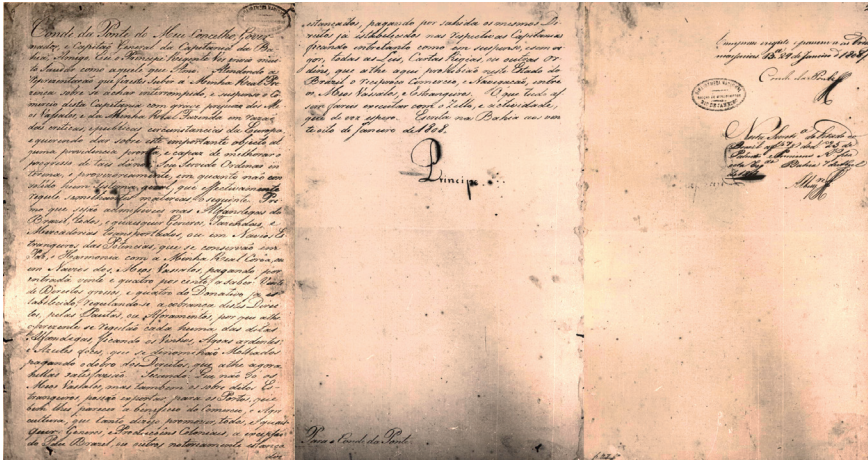 Conde da Ponte do Meu Concelho, Gover-
nador, e Capitão General da Capitania da Ba-
hia; Amigo. Eu o Principe Regente vos envio muito
Saudar como aquelle que Amo. Attendendo a
representação que fizeste subir a Minha Real Pre-
zença sobre se achar interrompido, e suspenso o Co-
mercio desta Capitania com grave prejuizo dos Me-
os Vassalos, e da Minha Real Fazenda em razão
das criticas, e publicas circunstancias da Europa,
e querendo dar sobre este importante objecto al-
guma providencia prompta, e capaz de melhorar o
progresso de taes danos: Sou Servido Ordenar in-
terina, e provisoriamente, em quanto não con-
solido hum Systema geral, que effectivamente
regule semelhantes materias, o seguinte. Pri-
mo: que sejão admissiveis nas Alfandegas do
Brazil todos, e quaesquer Generos, Fazendas, e
Mercadorias transportados, ou em Navios Es-
trangeiros das Potencias, que se conservão em
Paz, e Harmonia com a Minha Real Coroa, ou
em Navios dos Meos Vassalos, pagando por
entrada vinte e quatro por cento; a saber: Vinte
de Direitos grossos, e quatro do Donativo já es-
tabelecido, regulando-se a cobrança destes Direi-
tos pelas Pautas, ou Aforamentos, por que athe
o prezente se regulão cada huma das ditas
Alfandegas, ficando os Vinhos, Agoas ardentes,
e Azeites doces, que se denominão Molhados,
pagando o dobro dos Direitos, que athe agora
nellas satisfazião. Secundo: Que não só os
Meos Vassalos, mas tambem os sobreditos Es-
trangeiros possão exportar para os Portos, que
bem lhes parecer a beneficio do Comercio, e Agri-
cultura, que tanto dezejo promover, todos, e quaes-
quer Generos, e Producções Coloniaes, á excepção
do Páu Brazil, ou outros notoriamente estanca-
dos
estancados, pagando por sahida os mesmos Di-
reitos já estabelecidos nas respectivas Capitanias,
ficando entretanto como em suspenso, e sem vi-
gor, todas as Leis, Cartas Regias, ou outras Or-
dens, que athe aqui prohibião neste Estado do
Brazil o reciproco Comercio, e Navegação entre
os Meos Vassalos, e Estrangeiros. O que tudo as-
sim fareis executar com o Zello, e actividade,
que de vos espero. Escrita na Bahia aos vin-
te oito de Janeiro de 1808.
Principe
Para o Conde da Ponte
de Janeiro de 1808
Conde da Ponte